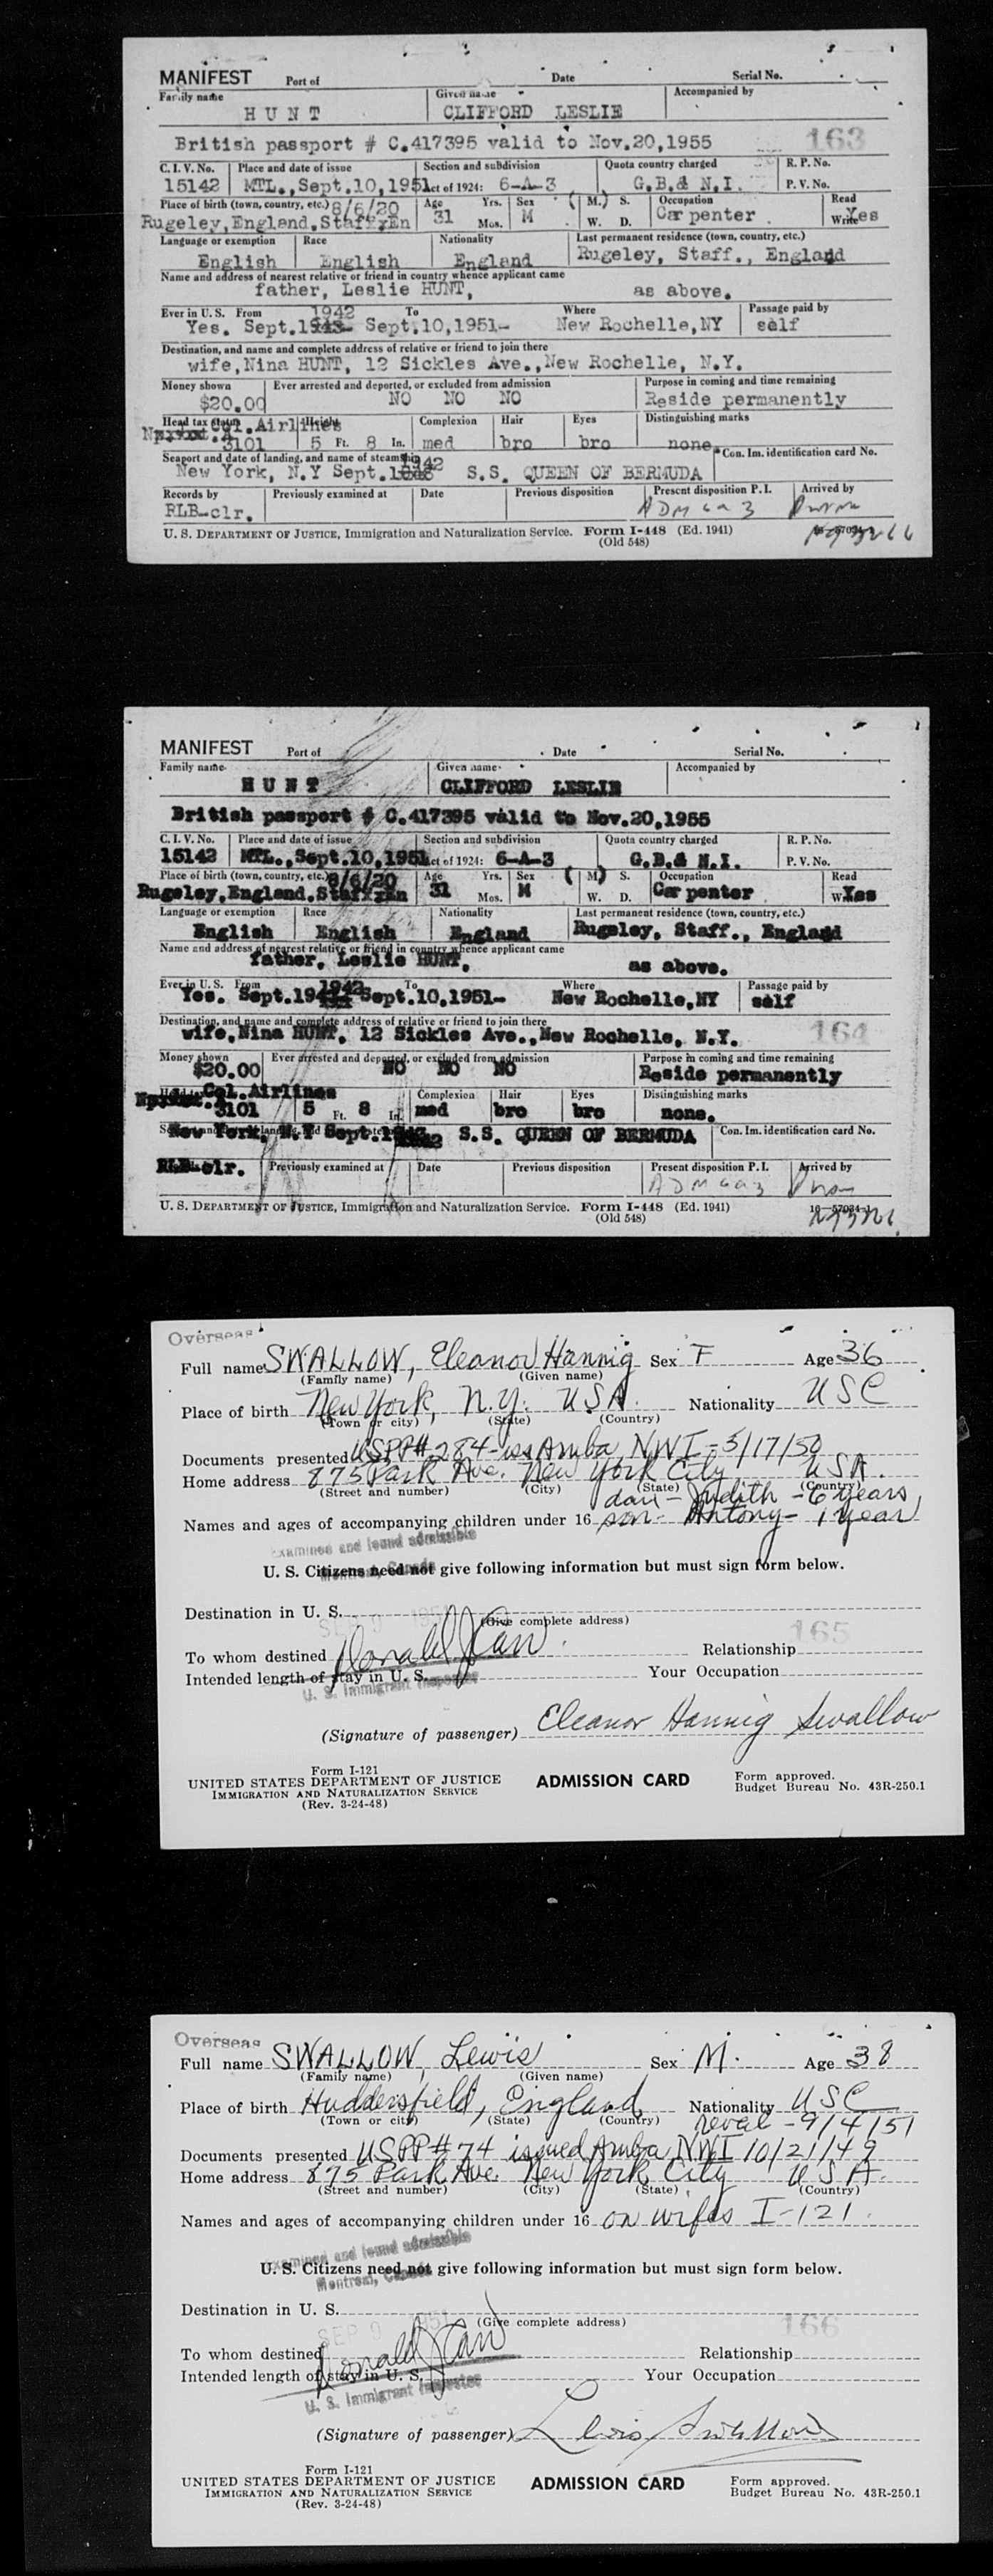 MANIFEST Port of Date Serial No.
Family name Given name Accompanied by
HUNT CLIFFORD LESLIE
British passport # C.417395 valid to Nov.20,1955 163
C. I. V. No. Place and date of issue Section and subdivision Quota country charged R. P. No.
15142 MTL.,Sept.10,1951 Act of 1924: 6-A-3 G.B.& N.I. P. V. No.
Place of birth (town, country, etc.) 8/6/20 Age Yrs. Sex (M.) S. Occupation Read
Rugeley,England,Staff 31 Mos. M W. D. Carpenter Write Yes
Language or exemption Race Nationality Last permanent residence (town, country, etc.)
English English England Rugeley, Staff., England
Name and address of nearest relative or friend in country whence applicant came
father, Leslie HUNT, as above.
Ever in U. S. From 1942 To Where Passage paid by
Yes. Sept.1943 Sept.10,1951- New Rochelle,NY self
Destination, and name and complete address of relative or friend to join there
wife,Nina HUNT, 12 Sickles Ave.,New Rochelle, N.Y.
Money shown Ever arrested and deported, or excluded from admission Purpose in coming and time remaining
$20.00 NO NO NO Reside permanently
Head tax status Col.Airlines Height Complexion Hair Eyes Distinguishing marks
3101 5 Ft. 8 In. med bro bro none.
Seaport and date of landing, and name of steamship Con. Im. identification card No.
New York, N.Y Sept. 1942 S.S. QUEEN OF BERMUDA
Records by Previously examined at Date Previous disposition Present disposition P. I. Arrived by
RLB-clr. ADM 6a3
U. S. DEPARTMENT OF JUSTICE, Immigration and Naturalization Service. Form I-448 (Ed. 1941)
(Old 548)
MANIFEST Port of Date Serial No.
Family name Given name Accompanied by
HUNT CLIFFORD LESLIE
British passport # C.417395 valid to Nov.20,1955
C. I. V. No. Place and date of issue Section and subdivision Quota country charged R. P. No.
15142 MTL.,Sept.10,1951 Act of 1924: 6-A-3 G.B.& N.I. P. V. No.
Place of birth (town, country, etc.) 8/6/20 Age Yrs. Sex (M.) S. Occupation Read
Rugeley,England,Staff 31 Mos. M W. D. Carpenter Yes
Language or exemption Race Nationality Last permanent residence (town, country, etc.)
English English England Rugeley, Staff., England
Name and address of nearest relative or friend in country whence applicant came
father, Leslie HUNT, as above.
Ever in U. S. From 1942 To Where Passage paid by
Yes. Sept.194 Sept.10,1951- New Rochelle,NY self
Destination, and name and complete address of relative or friend to join there
wife,Nina HUNT, 12 Sickles Ave.,New Rochelle, N.Y. 164
Money shown Ever arrested and deported, or excluded from admission Purpose in coming and time remaining
$20.00 NO NO NO Reside permanently
Col.Airlines Complexion Hair Eyes Distinguishing marks
3101 5 Ft. 8 In. med bro bro none.
New York, N.Y Sept. 1942 S.S. QUEEN OF BERMUDA Con. Im. identification card No.
RLB-clr. Previously examined at Date Previous disposition Present disposition P. I. Arrived by
ADM 6a3
U. S. DEPARTMENT OF JUSTICE, Immigration and Naturalization Service. Form I-448 (Ed. 1941) 16-57034-1
(Old 548)
Overseas
Full name SWALLOW, Eleanor Hannig Sex F Age 36
(Family name) (Given name)
Place of birth New York, N.Y. USA. Nationality USC
(Town or city) (State) (Country)
Documents presented USPP# 284-iss Aruba NWI-5/17/50
Home address 875 Park Ave. New York City USA.
(Street and number) (City) (State) (Country)
dau - Judith - 6 years
Names and ages of accompanying children under 16 son - Antony - 1 year
Examined and found admissible
Montreal, Canada
U. S. Citizens need not give following information but must sign form below.
Destination in U. S.
SEP 9 1951 (Give complete address)
165
To whom destined Donald J Carr Relationship
Intended length of stay in U. S. Your Occupation
U. S. Immigrant Inspector
(Signature of passenger) Eleanor Hannig Swallow
Form I-121
UNITED STATES DEPARTMENT OF JUSTICE ADMISSION CARD Form approved.
IMMIGRATION AND NATURALIZATION SERVICE Budget Bureau No. 43R-250.1
(Rev. 3-24-48)
Overseas
Full name SWALLOW, Lewis Sex M. Age 38
(Family name) (Given name)
Place of birth Huddersfield, England Nationality USC
(Town or city) (State) (Country) reval - 9/4/51
Documents presented USPP# 74 issued Aruba NWI 10/21/49
Home address 875 Park Ave. New York City USA.
(Street and number) (City) (State) (Country)
Names and ages of accompanying children under 16 on wifes I-121.
Examined and found admissible
Montreal, Canada
U. S. Citizens need not give following information but must sign form below.
Destination in U. S.
SEP 9 1951 (Give complete address) 166
To whom destined Donald J Carr Relationship
Intended length of stay in U. S. Your Occupation
U. S. Immigrant Inspector
(Signature of passenger) Lewis Swallow
Form I-121
UNITED STATES DEPARTMENT OF JUSTICE ADMISSION CARD Form approved.
IMMIGRATION AND NATURALIZATION SERVICE Budget Bureau No. 43R-250.1
(Rev. 3-24-48)